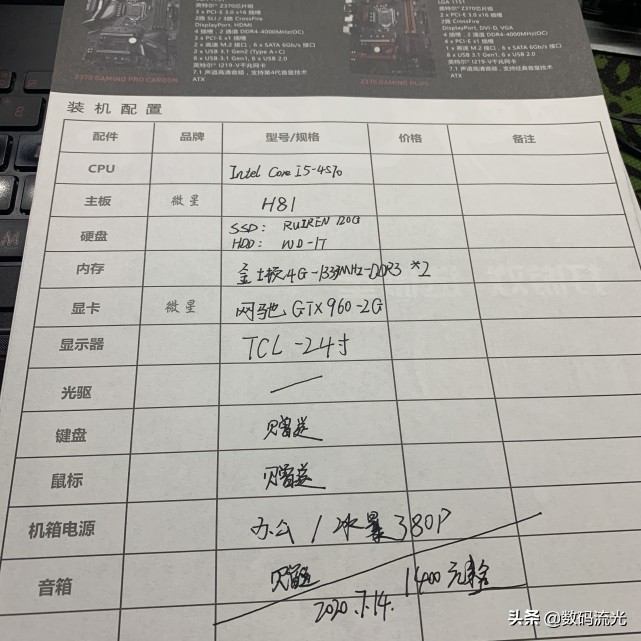 英特尔® Z370芯片组
3 x PCI-E 3.0 x16 插槽
2路 SLI / 3路 CrossFire
DisplayPort, HDMI
4 插槽, 2 通道 DDR4-4000MHz(OC)
3 x PCI-E x1 插槽
2 x 高速 M.2 接口, 6 x SATA 6Gb/s 接口
2 x USB 3.1 Gen2 (Type A+C)
8 x USB 3.1 Gen1, 6 x USB 2.0
英特尔® I219-V千兆网卡
7.1 声道高清音频, 支持第4代音皇技术
ATX
Z370 GAMING PRO CARBON
LGA 1151
英特尔® Z370芯片组
2 x PCI-E 3.0 x16 插槽
2路 CrossFire
DisplayPort, DVI-D, VGA
4 插槽, 2 通道 DDR4-4000MHz(OC)
4 x PCI-E x1 插槽
1 x 高速 M.2 接口, 6 x SATA 6Gb/s 接口
6 x USB 3.1 Gen1, 6 x USB 2.0
英特尔® I219-V千兆网卡
7.1 声道高清音频, 支持经典音皇技术
ATX
Z370 GAMING PLUS
装机配置
配件 品牌 型号/规格 价格 备注
CPU Intel Core i5-4570
主板 微星 H81
硬盘 SSD: RUIREN 120G
HDD: WD-1T
内存 金士顿4G-1333MHz-DDR3 *2
显卡 微星 网驰 GTX960-2G
显示器 TCL -24寸
光驱 —
键盘 赠送
鼠标 赠送
机箱电源 办公 / 冰暴380P
音箱 赠送 1400元整
2020.7.14.
头条 @数码流光